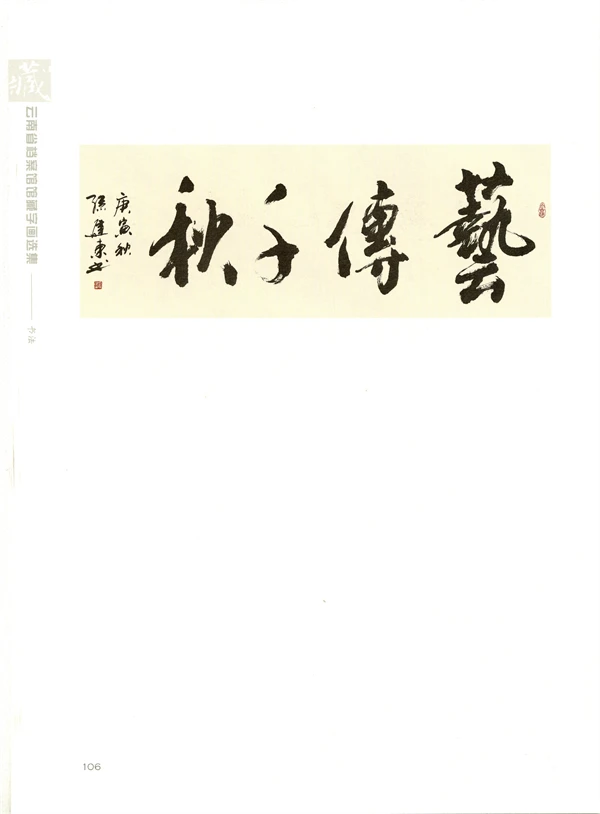 藏
云南省档案馆馆藏字画选集 —— 书法
藝傳千秋
庚寅秋
孫建東书
106